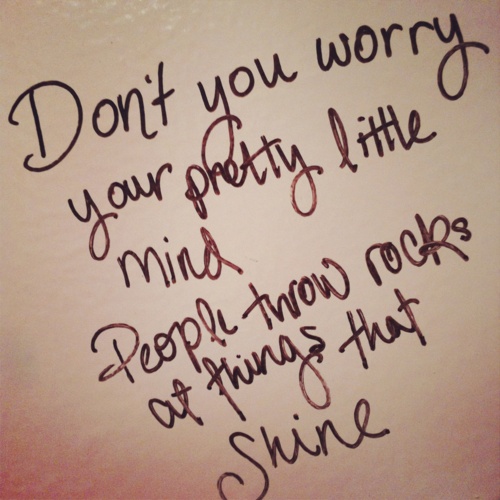 Don't you worry
your pretty little
mind
People throw rocks
at things that
Shine